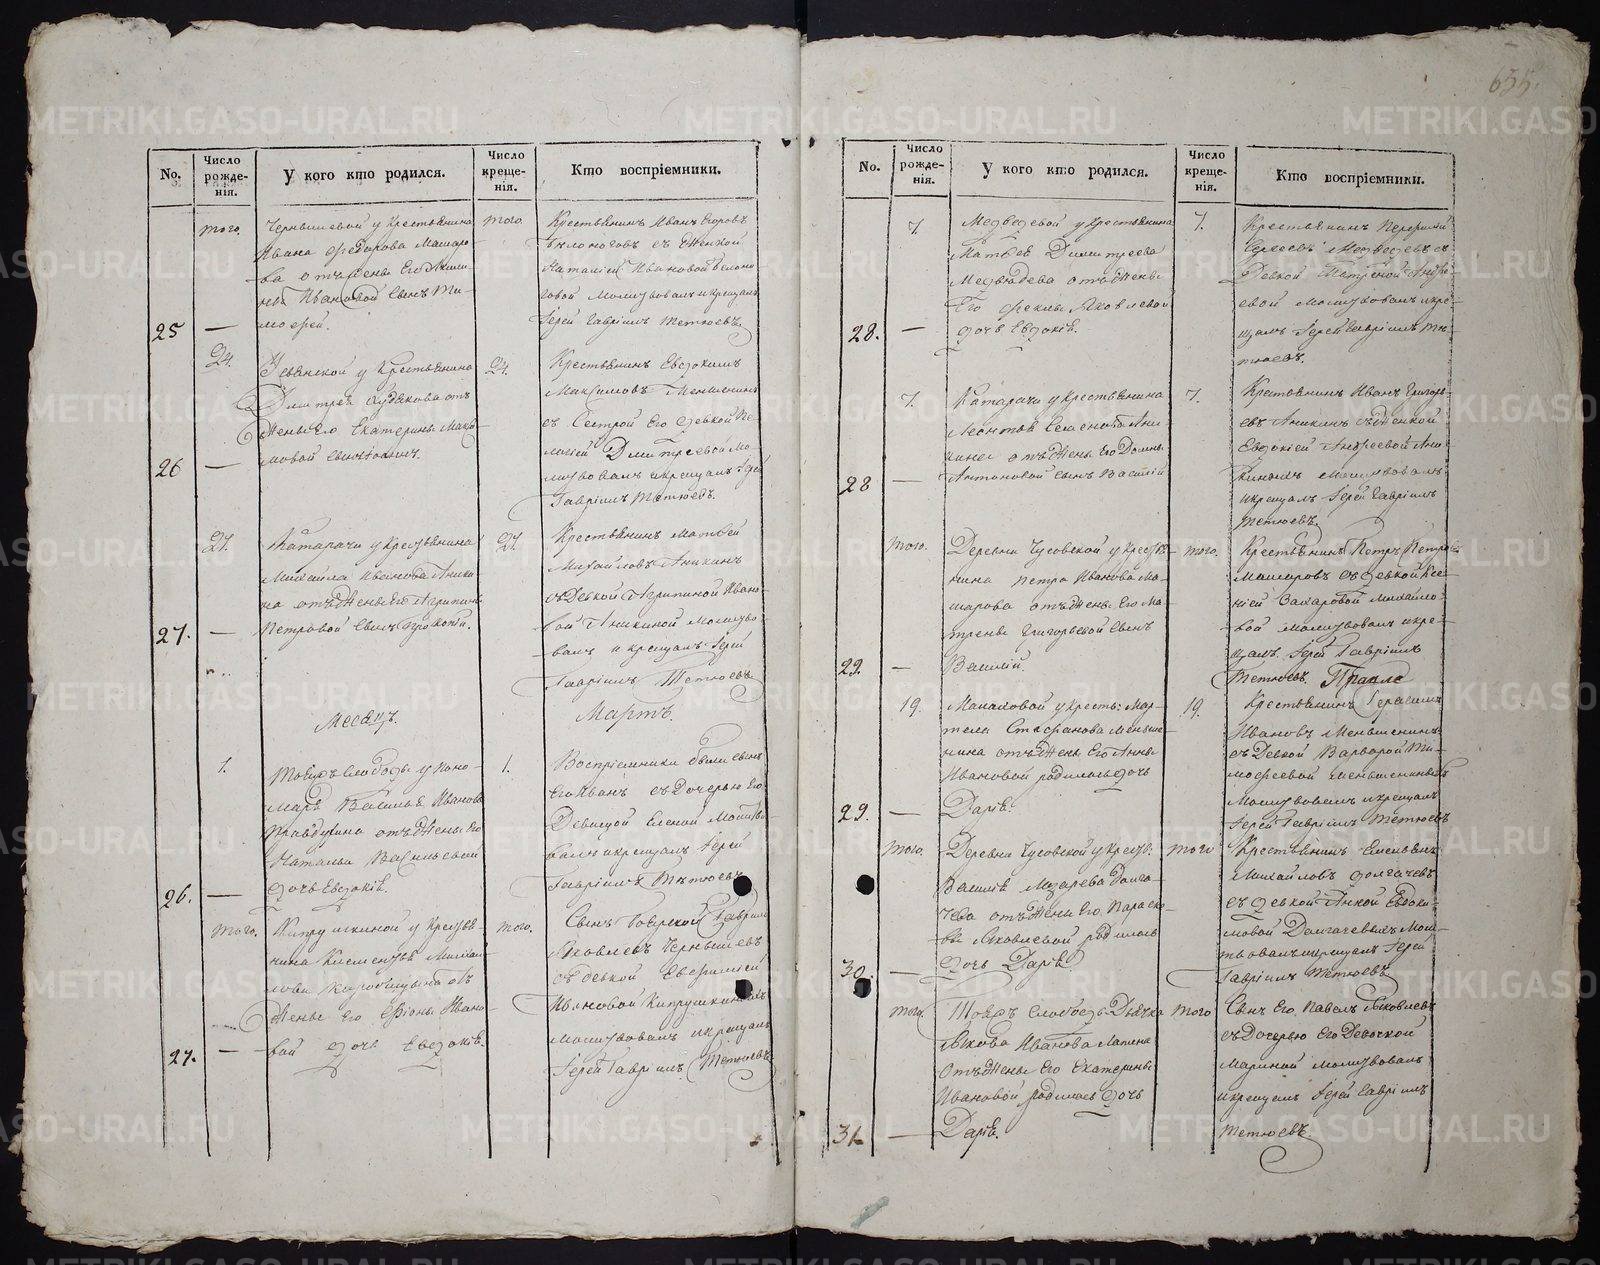 635.
No.
Число рожде-нія.
У кого кто родился.
Число креще-нія.
Кто воспріемники.
того.
Чернышевой у крестьянина
Ивана Федорова Машаро-
ва отъ жены его
Ивановой сынъ Ти-
мофей.
25
того.
Крестьянинъ Иванъ Егоровъ
Бѣлоноговъ съ женкой
Наталіей Ивановой Бѣлоно-
говой молитвовалъ и крещалъ
Іерей Гавріилъ Тетюевъ.
24.
у крестьянина
Дмитрея Кудякова отъ
жены его Екатерины Макси-
мовой сынъ
26
24.
Крестьянинъ Евдокимъ
Максимовъ Меньшенинъ
съ Сестрой его девкой Пе-
лагіей Дмитреевой мо-
литвовалъ и крещалъ Іерей
Гавріилъ Тетюевъ.
27.
Катарачи у крестьянина
Михайла Иванова Аники-
на отъ жены его Агрипины
Петровой сынъ Прокопій.
27.
27.
Крестьянинъ Матвей
Михайловъ Аникинъ
съ девкой Агрипиной Ивано-
вой Аникиной молитво-
валъ и крещалъ Іерей
Гавріилъ Тетюевъ.
Месяцъ.
Мартъ.
1.
слободы у Поно-
маря Василья Иванова
отъ жены его
Натальи Васильевой
дочь Евдокія.
26.
1.
Воспріемники были сынъ
его Иванъ съ дочерью его
Девицой Еленой молитво-
валъ и крещалъ Іерей
Гавріилъ Тетюевъ
того.
Кипрушкиной у крестья-
нина Климентья Михай-
лова отъ
жены его Ивано-
вой дочь Евдокія.
27.
того.
Сынъ Боярской Гаврило
Яковлевъ Чернышевъ
съ девкой Евфиміей
Ивановой Кипрушкиныхъ
молитвовалъ и крещалъ
Іерей Гавріилъ Тетюевъ
No.
Число рожде-нія.
У кого кто родился.
Число креще-нія.
Кто воспріемники.
7.
Медведевой у крестьянина
Матвея Димитреева
Медведева отъ жены
его Феклы Яковлевой
дочь Евдокія.
28.
7.
Крестьянинъ Перфирій
Медведевъ съ
Девкой Андре-
евой молитвовалъ и кре-
щалъ Іерей Гавріилъ Те-
тюевъ.
7.
Катарачи у крестьянина
Леонтья Семенова Ани-
кина отъ жены его Домны
Антоновой сынъ Василій
28
7.
Крестьянинъ Иванъ Григорь-
евъ Аникинъ съ женкой
Евдокіей Андреевой Ани-
киныхъ молитвовалъ
и крещалъ Іерей Гавріилъ
Тетюевъ.
того.
Деревни Чусовской у крестья-
нина Петра Иванова Ма-
шарова отъ жены его Ма-
трены Григорьевой сынъ
Василій.
29.
того.
Крестьянинъ Петръ Петровъ
Машаровъ съ девкой Ксе-
ніей Захаровой Михайло-
вой молитвовалъ и кре-
щалъ Іерей Гавріилъ
Тетюевъ.
19.
Макаховой у кресть: Мар-
тела Стефанова Меньше-
нина отъ жены его Анны
Ивановой родилась дочь
Дарія.
29.
19.
Крестьянинъ Герасимъ
Ивановъ Меньшенинъ
съ Девкой Варварой Ти-
мофеевой Меньшениныхъ
молитвовалъ и крещалъ
Іерей Гавріилъ Тетюевъ
того.
Деревни Чусовской у крестья:
Василія Лазарева Долга-
чева отъ жены его Параско-
вьи Яковлевой родилась
дочь Дарія.
30.
того
Крестьянинъ Емельянъ
Михайловъ Долгачевъ
съ девкой Анной Евдоки-
мовой Долгачевыхъ моли-
твовалъ и крещалъ Іерей
Гавріилъ Тетюевъ.
того
слободы Дьячка
Якова Иванова Лапина
отъ жены его Екатерины
Ивановой родилась дочь
Дарія.
31.
того
Сынъ его Павелъ Яковлевъ
съ дочерью его Девочкой
Мариной молитвовалъ
и крещалъ Іерей Гавріилъ
Тетюевъ.
METRIKI.GASO-URAL.RU